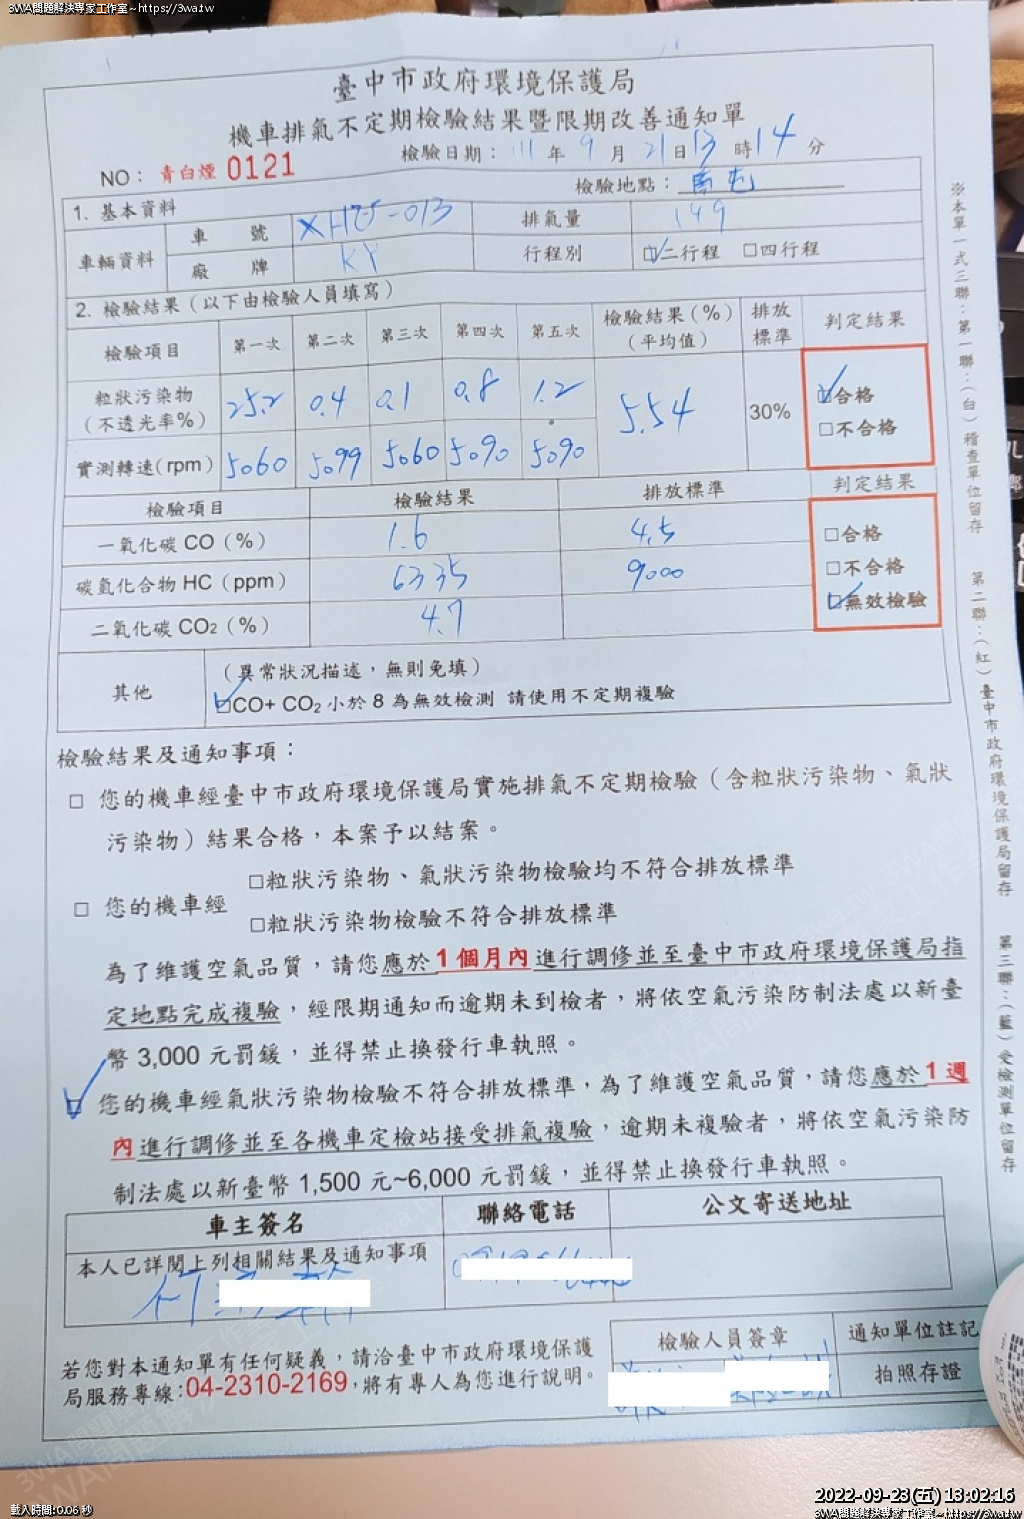 3WA問題解決專家工作室~https://3wa.tw
臺中市政府環境保護局
機車排氣不定期檢驗結果暨限期改善通知單
檢驗日期：111年9月21日13時14分
NO：青白煙0121
檢驗地點：
1. 基本資料
車輛資料 車號 排氣量 149
廠牌 KY 行程別 ☑二行程 □四行程
2. 檢驗結果（以下由檢驗人員填寫）
檢驗項目 第一次 第二次 第三次 第四次 第五次 檢驗結果（%）（平均值） 排放標準 判定結果
粒狀污染物（不透光率%） 25.2 0.4 0.1 0.8 1.2 5.54 30% ☑合格 □不合格
實測轉速(rpm) 5060 5099 5060 5090 5090
檢驗項目 檢驗結果 排放標準 判定結果
一氧化碳 CO（%） 1.6 4.5 □合格
碳氫化合物 HC（ppm） 6335 9000 □不合格
二氧化碳 CO2（%） 4.7 ☑無效檢驗
其他 （異常狀況描述，無則免填）
☑CO+ CO2 小於 8 為無效檢測 請使用不定期複驗
檢驗結果及通知事項：
□ 您的機車經臺中市政府環境保護局實施排氣不定期檢驗（含粒狀污染物、氣狀
污染物）結果合格，本案予以結案。
□ 您的機車經 □粒狀污染物、氣狀污染物檢驗均不符合排放標準
□粒狀污染物檢驗不符合排放標準
為了維護空氣品質，請您應於1個月內進行調修並至臺中市政府環境保護局指
定地點完成複驗，經限期通知而逾期未到檢者，將依空氣污染防制法處以新臺
幣 3,000 元罰鍰，並得禁止換發行車執照。
☑ 您的機車經氣狀污染物檢驗不符合排放標準，為了維護空氣品質，請您應於1週
內進行調修並至各機車定檢站接受排氣複驗，逾期未複驗者，將依空氣污染防
制法處以新臺幣 1,500 元~6,000 元罰鍰，並得禁止換發行車執照。
車主簽名 聯絡電話 公文寄送地址
本人已詳閱上列相關結果及通知事項
若您對本通知單有任何疑義，請洽臺中市政府環境保護
局服務專線:04-2310-2169,將有專人為您進行說明。
檢驗人員簽章 通知單位註記
拍照存證
※本單一式三聯：第一聯：（白）稽查單位留存 第二聯：（紅）臺中市政府環境保護局留存 第三聯：（藍）受檢測單位留存
載入時間:0.06 秒
2022-09-23(五) 13:02:16
3WA問題解決專家工作室~https://3wa.tw